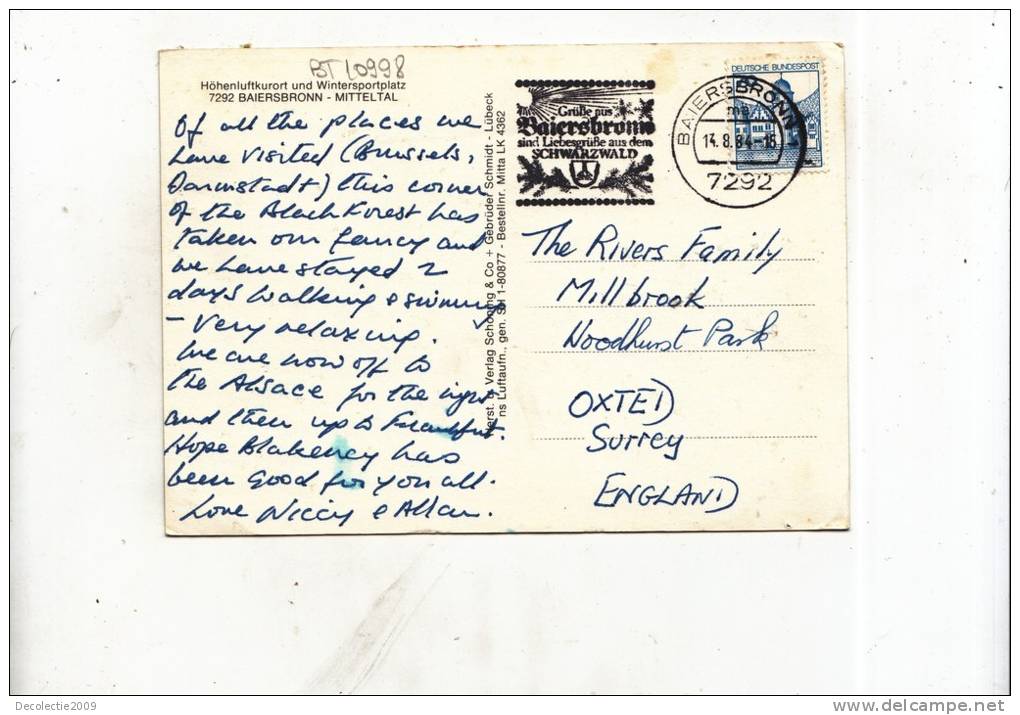 BT 10998
Höhenluftkurort und Wintersportplatz
7292 BAIERSBRONN - MITTELTAL
Of all the places we
have visited (Brussels,
Darmstadt) this corner
of the Black Forest has
taken our fancy and
we have stayed 2
days walking & swimming
- very relaxing.
We are now off to
the Alsace for the night
and then up to Frankfurt.
Hope Blakeney has
been good for you all.
Love Niccy & Allan.
Verlag Schöning & Co + Gebrüder Schmidt - Lübeck
Luftaufn., gen. 1-80877 - Bestellnr. Mitta LK 4362
Grüße aus
Baiersbronn
sind Liebesgrüße aus dem
SCHWARZWALD
DEUTSCHE BUNDESPOST
BAIERSBRONN 1
ma
14.8.84-16
7292
The Rivers Family
Millbrook
Woodhurst Park
OXTED
Surrey
ENGLAND
Decolectie2009
www.delcampe.net